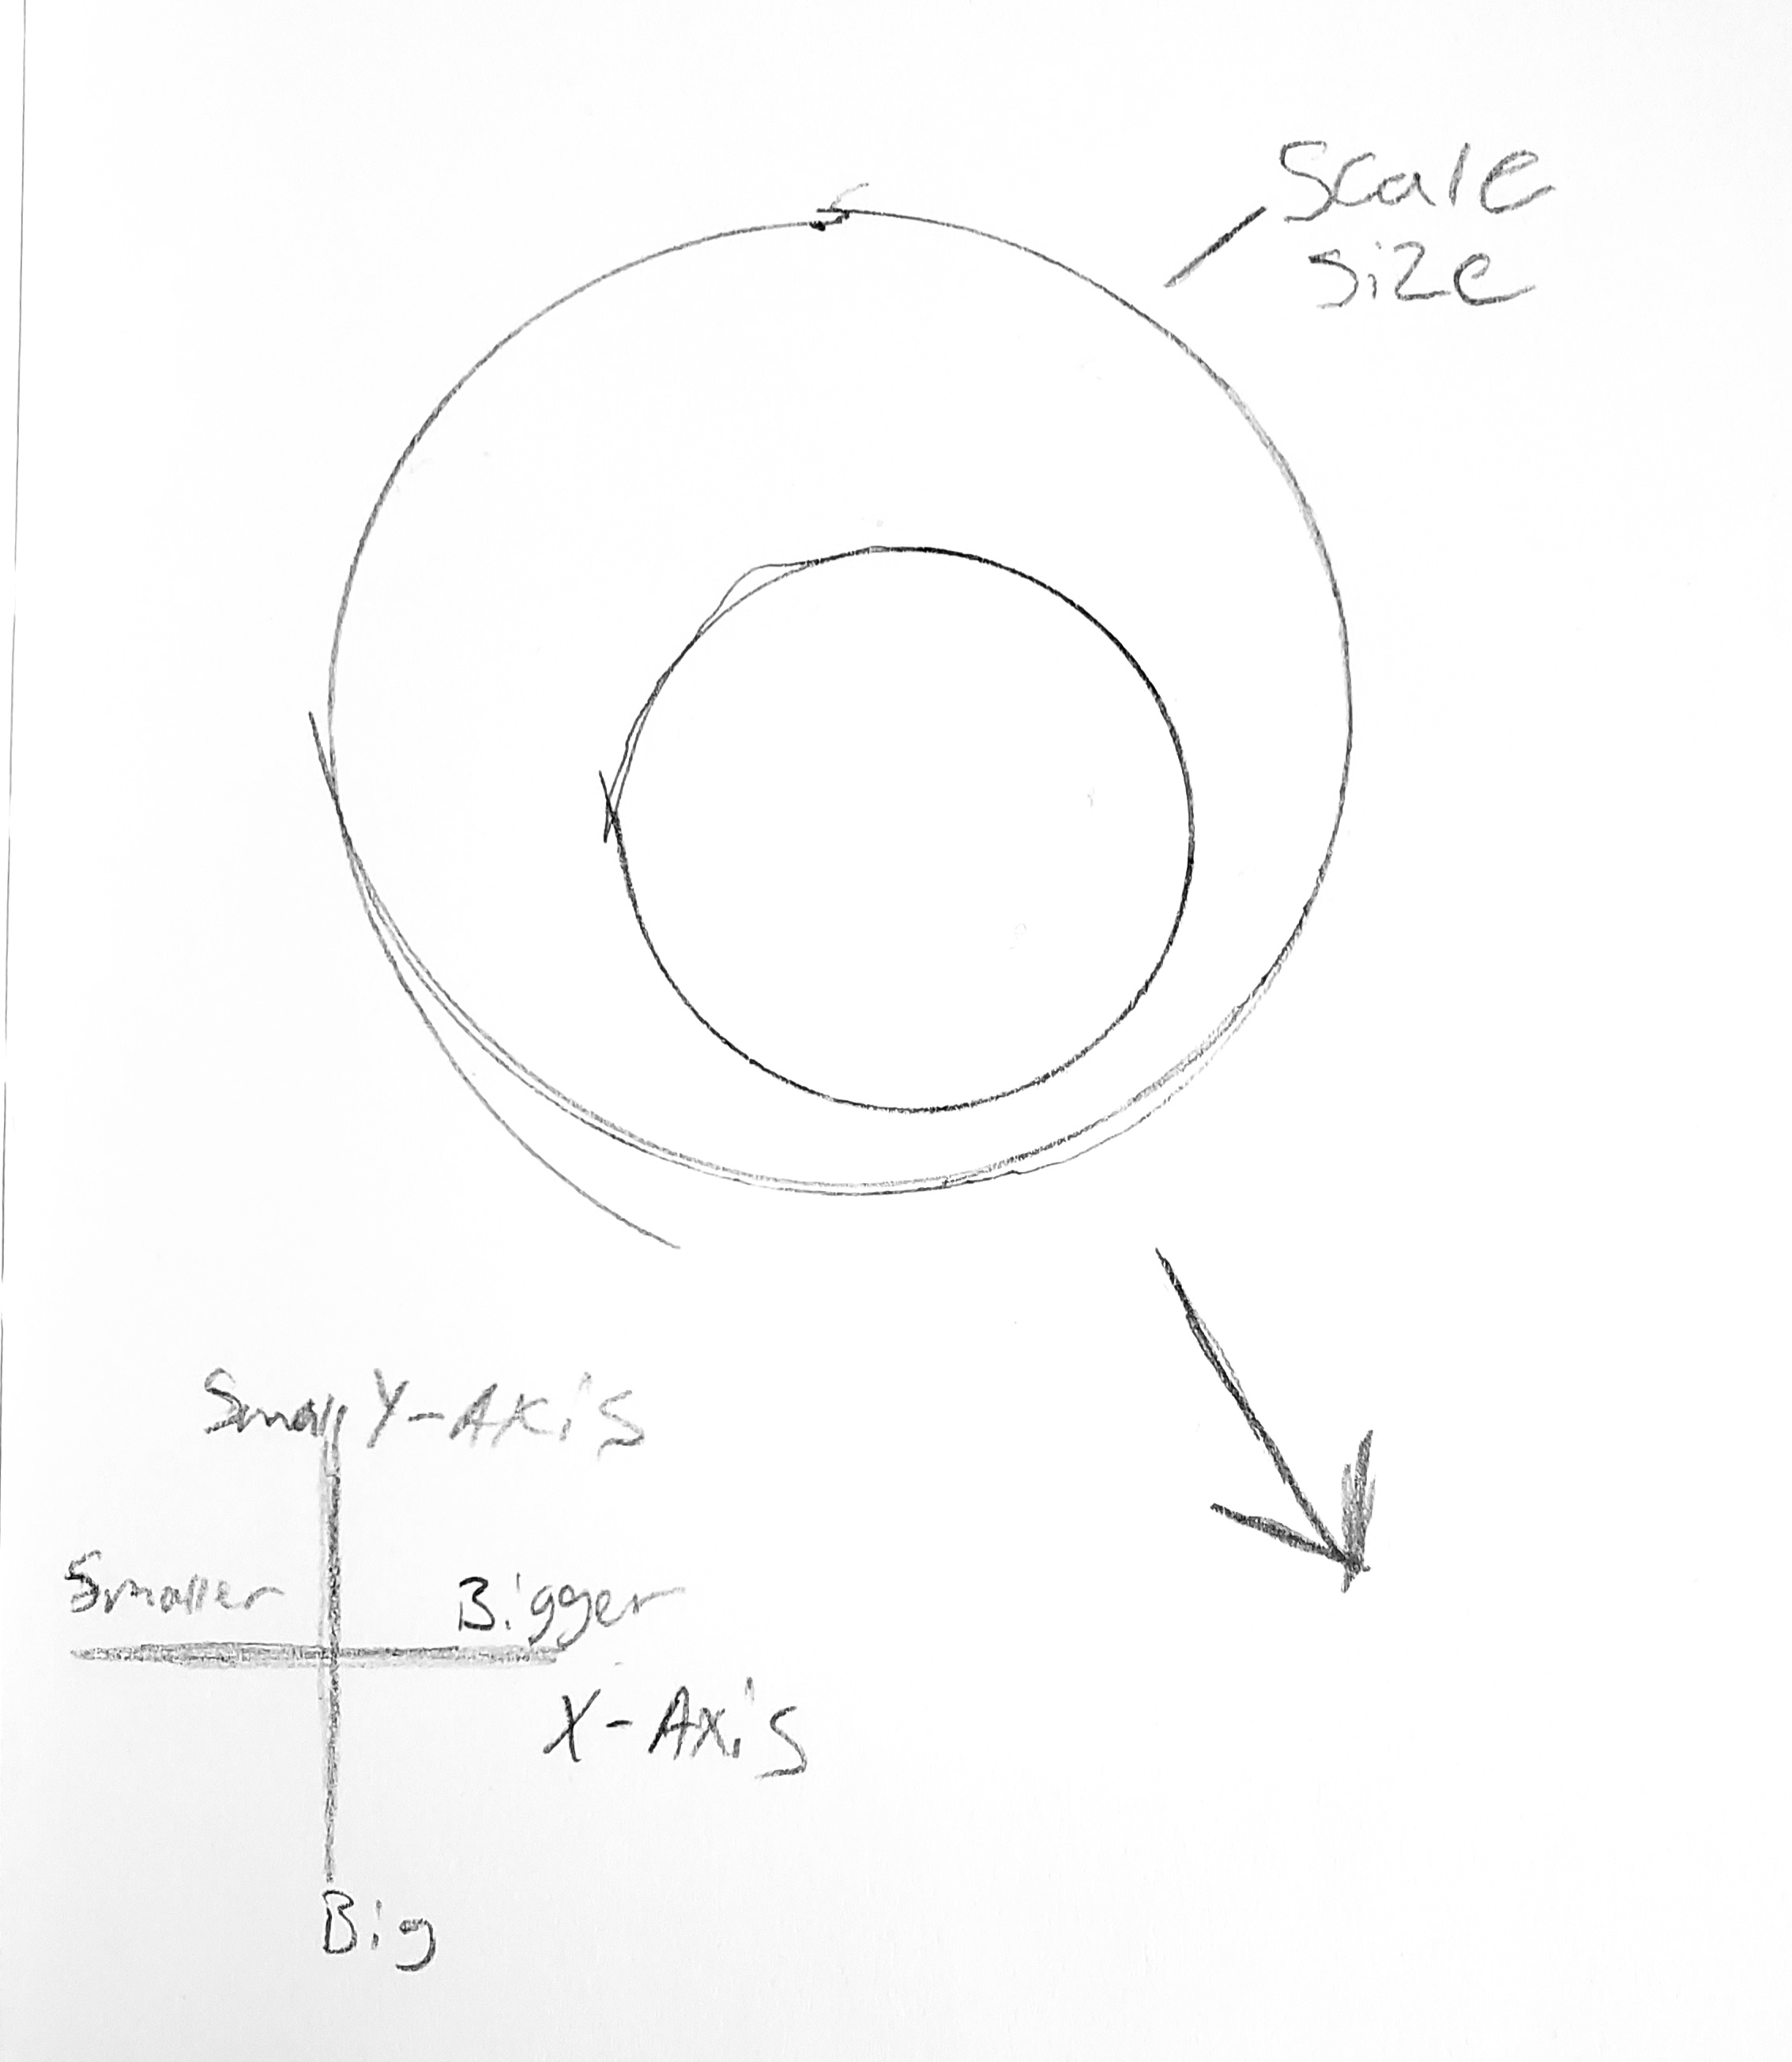 Scale
size
Small Y-Axis
Smaller
Bigger
X-Axis
Big